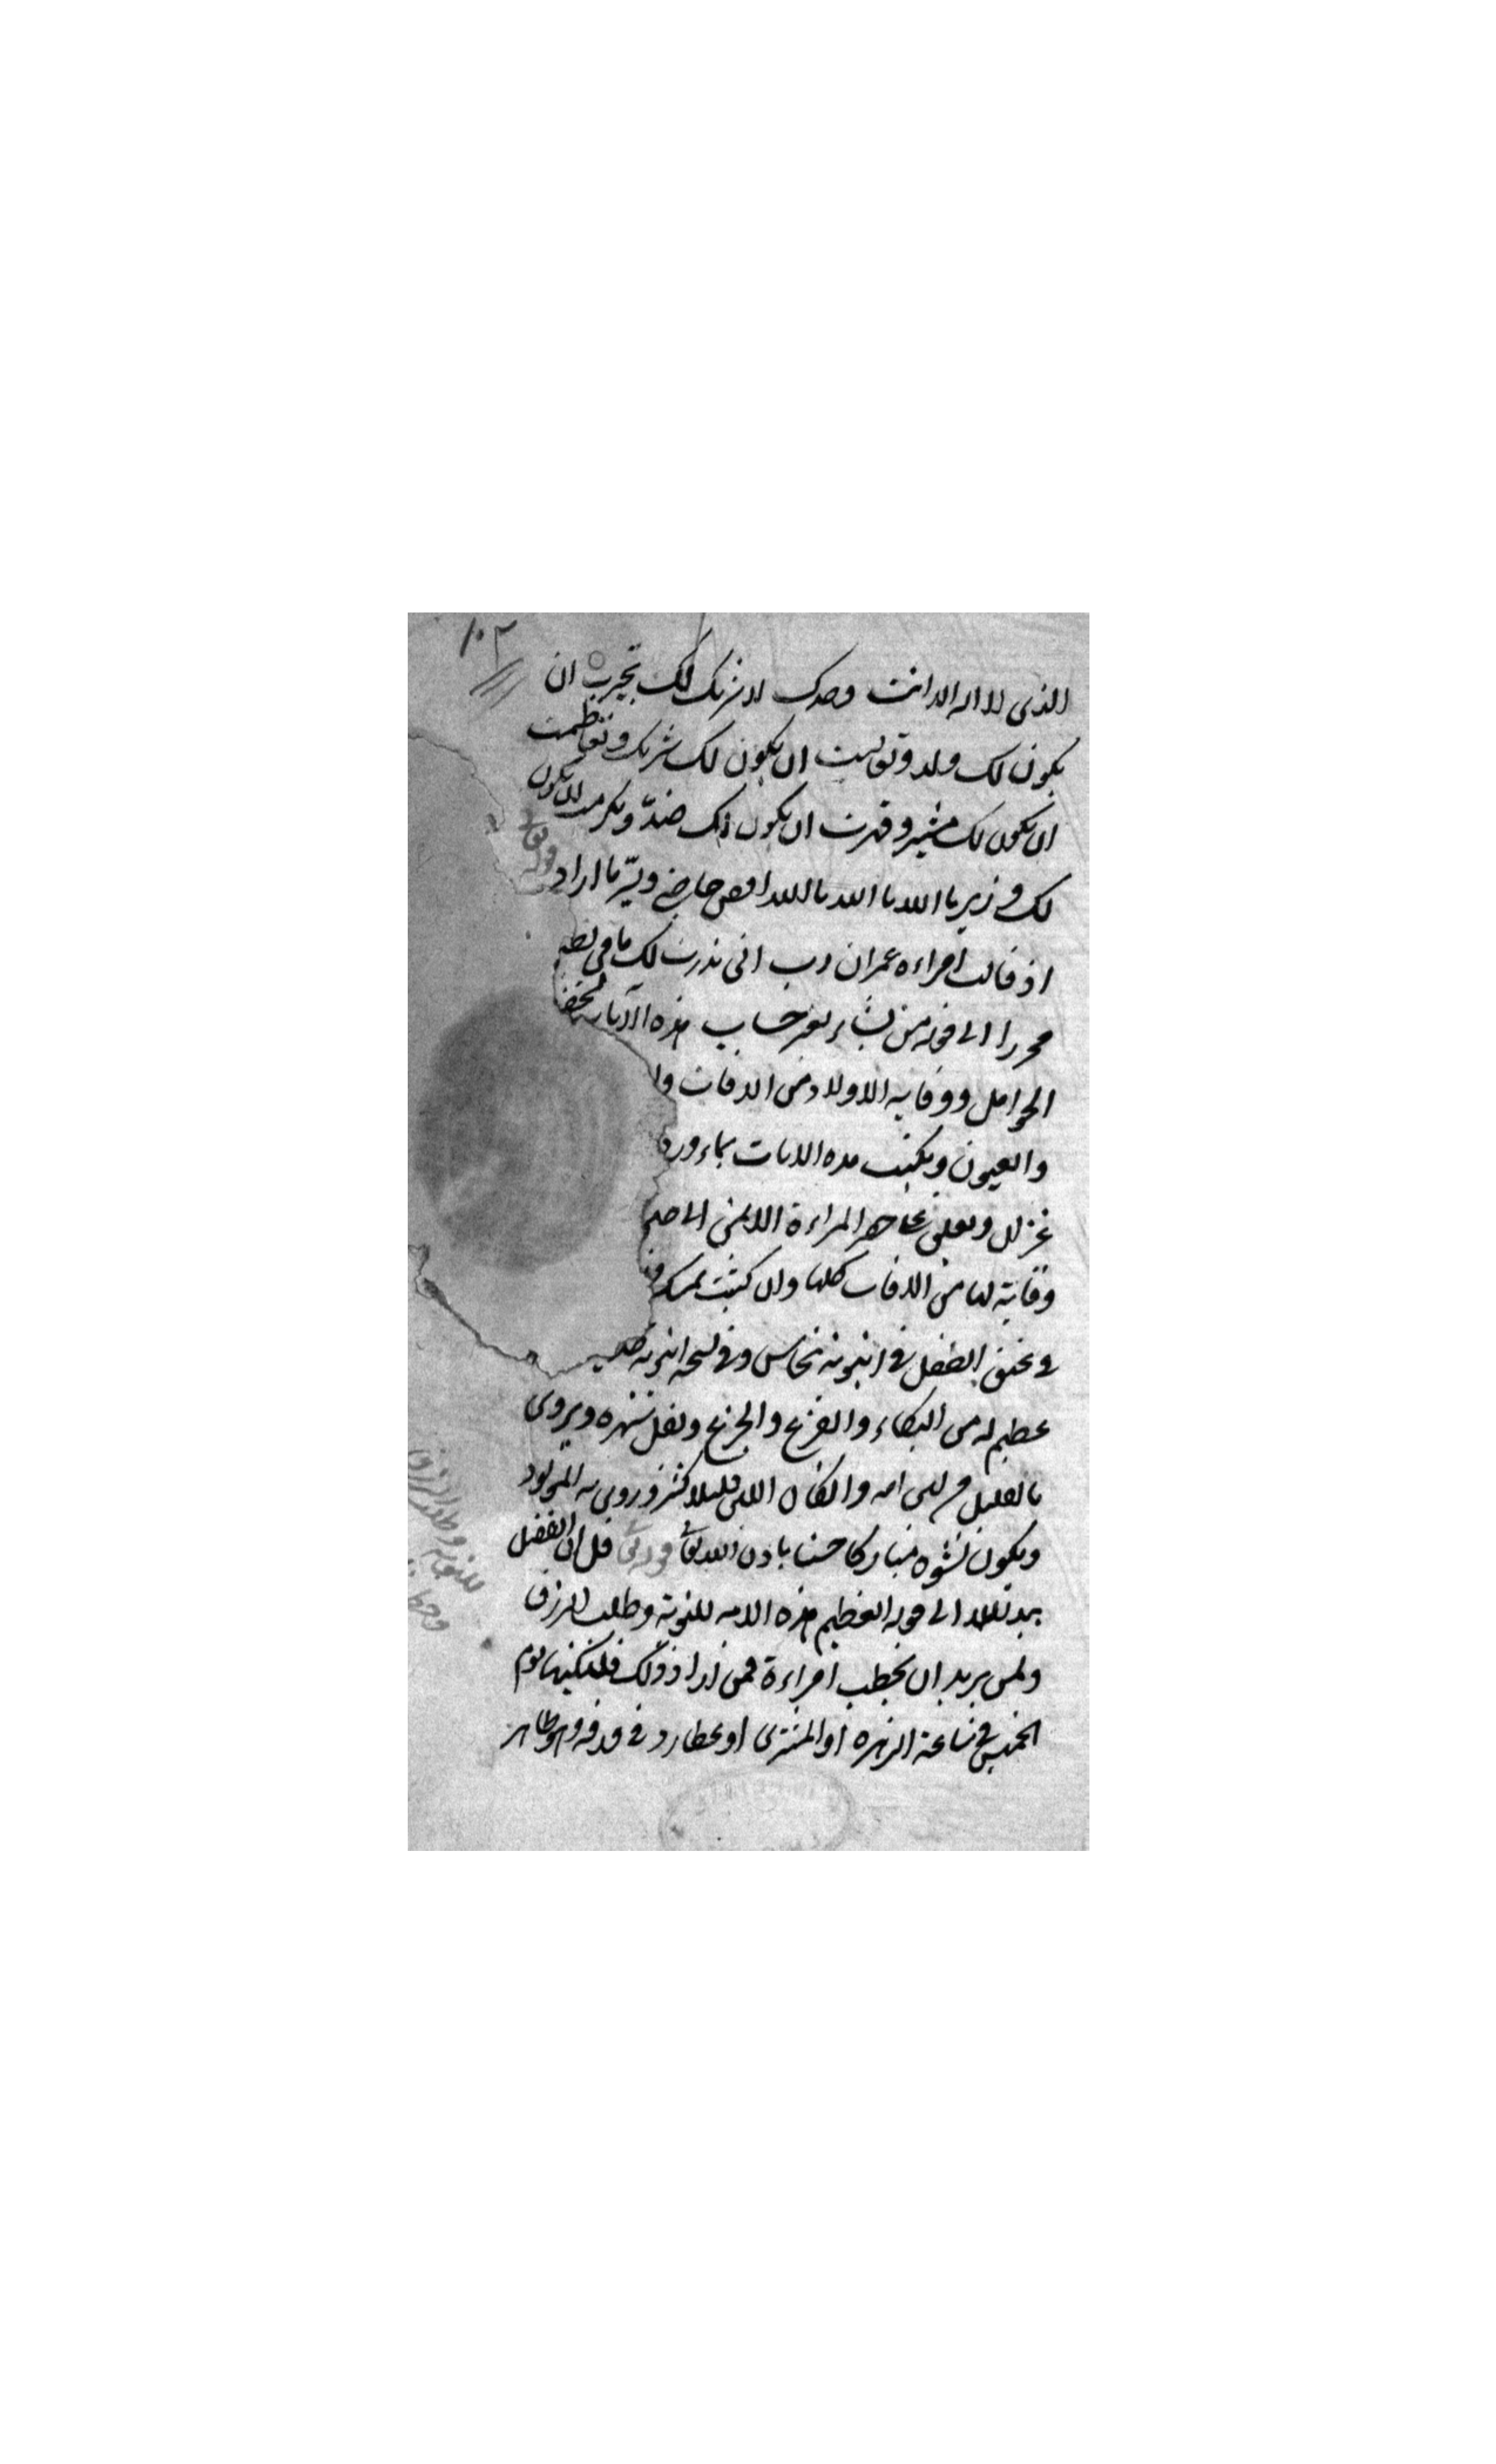 ١٠٢
الذى لا اله الا انت وحدك لا شريك لك تجبرت ان
يكون لك ولد وتعاليت ان يكون لك شريك وتعاظمت
ان يكون لك مشير وقدرت ان يكون لك ضدّ وتكرمت ان يكون
لك وزير يا الله يا الله يا الله اقض حاجتي ويسّر ما اراد
اذ قالت امراءة عمران رب انى نذرت لك ما فى بطنى
محررا الى قوله من يشاء بغير حساب هذه الآيات لحفظ
الحوامل ووقايه الاولاد من الافات وا
والعيون ويكتب هذه الايات بماء ورد
غزال ويعلق على المراءة الايمن
وقاية لها من الافات كلها وان كتبت بمسك
فى عنق الطفل فى انبوبة نحاس وفى نسخه انبوبه
عظيم له من البكاء والفزع والجزع ويروى
بالقليل من لبن امه وان كان اللبن قليلا كثر وروى به المولود
ويكون نشوه مباركا حسنا باذن الله تعالى قوله تعالى قل ان الفضل
بيد الله الى قوله العظيم هذه الايه للتوبة وطلب الرزق
ولمن يريد ان يخطب امراءة فمن اراد ذلك فليكتبها يوم
الخميس فى ساعة الزهره او المشترى او عطارد فى
قوله تعالى
للتوبه وطلب الرزق